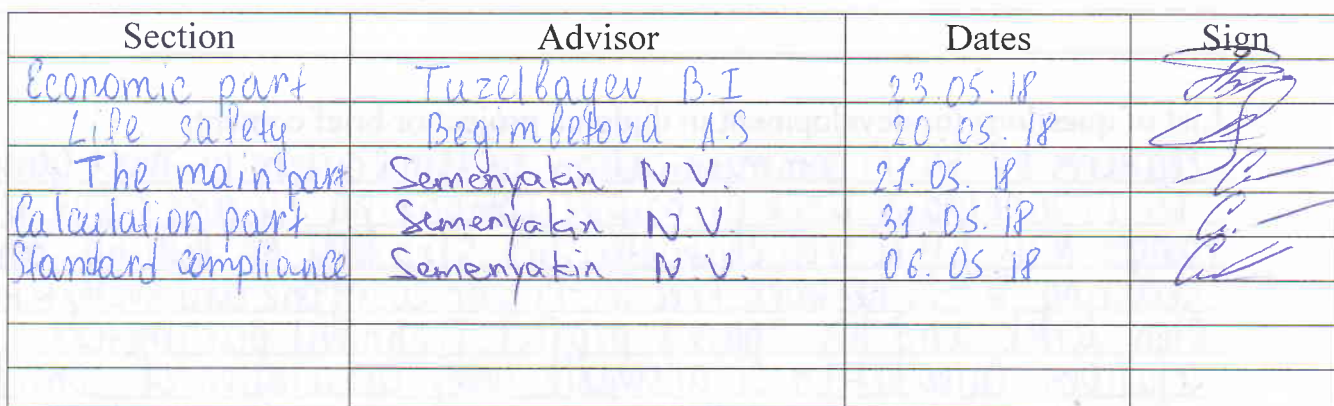 Section Advisor Dates Sign
Economic part Tuzelbayev B.I 23.05.18
Life safety Begimbetova A.S 20.05.18
The main part Semenyakin N.V. 21.05.18
Calculation part Semenyakin N.V. 31.05.18
Standard compliance Semenyakin N.V. 06.05.18